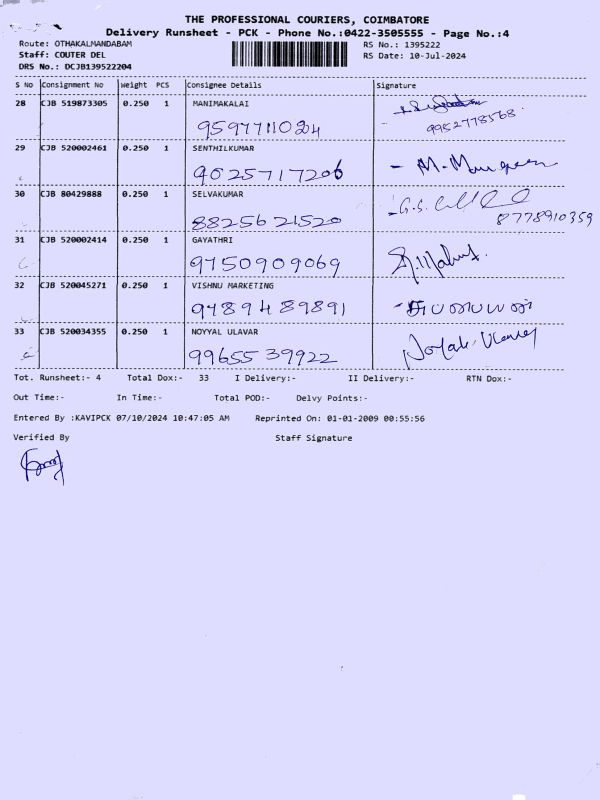 THE PROFESSIONAL COURIERS, COIMBATORE
Delivery Runsheet - PCK - Phone No.:0422-3505555 - Page No.:4
Route: OTHAKALMANDABAM RS No.: 1395222
Staff: COUTER DEL RS Date: 10-Jul-2024
DRS No.: DCJB139522204
S No Consignment No Weight PCS Consignee Details Signature
28 CJB 519873305 0.250 1 MANIMAKALAI
9952778568
29 CJB 520002461 0.250 1 SENTHILKUMAR
9025717206
30 CJB 80429888 0.250 1 SELVAKUMAR
8825621520 8778910359
31 CJB 520002414 0.250 1 GAYATHRI
9750909069
32 CJB 520045271 0.250 1 VISHNU MARKETING
9489489891
33 CJB 520034355 0.250 1 NOYYAL ULAVAR
9965539922
Tot. Runsheet:- 4 Total Dox:- 33 I Delivery:- II Delivery:- RTN Dox:-
Out Time:- In Time:- Total POD:- Delvy Points:-
Entered By :KAVIPCK 07/10/2024 10:47:05 AM Reprinted On: 01-01-2009 00:55:56
Verified By Staff Signature